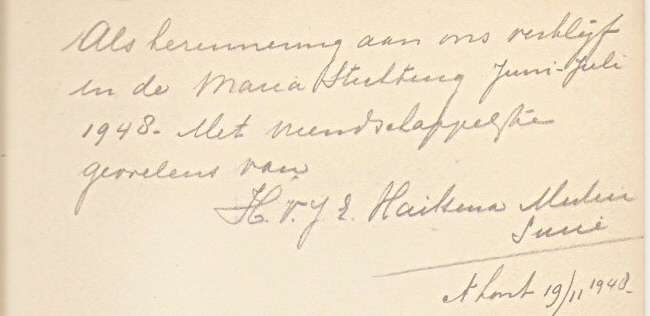 Als herinnering aan ons verblijf
in de Maria Stichting Juni-Juli
1948. Met vriendschappelijke
gevoelens van
H. V. J. E.
19/11 1948.